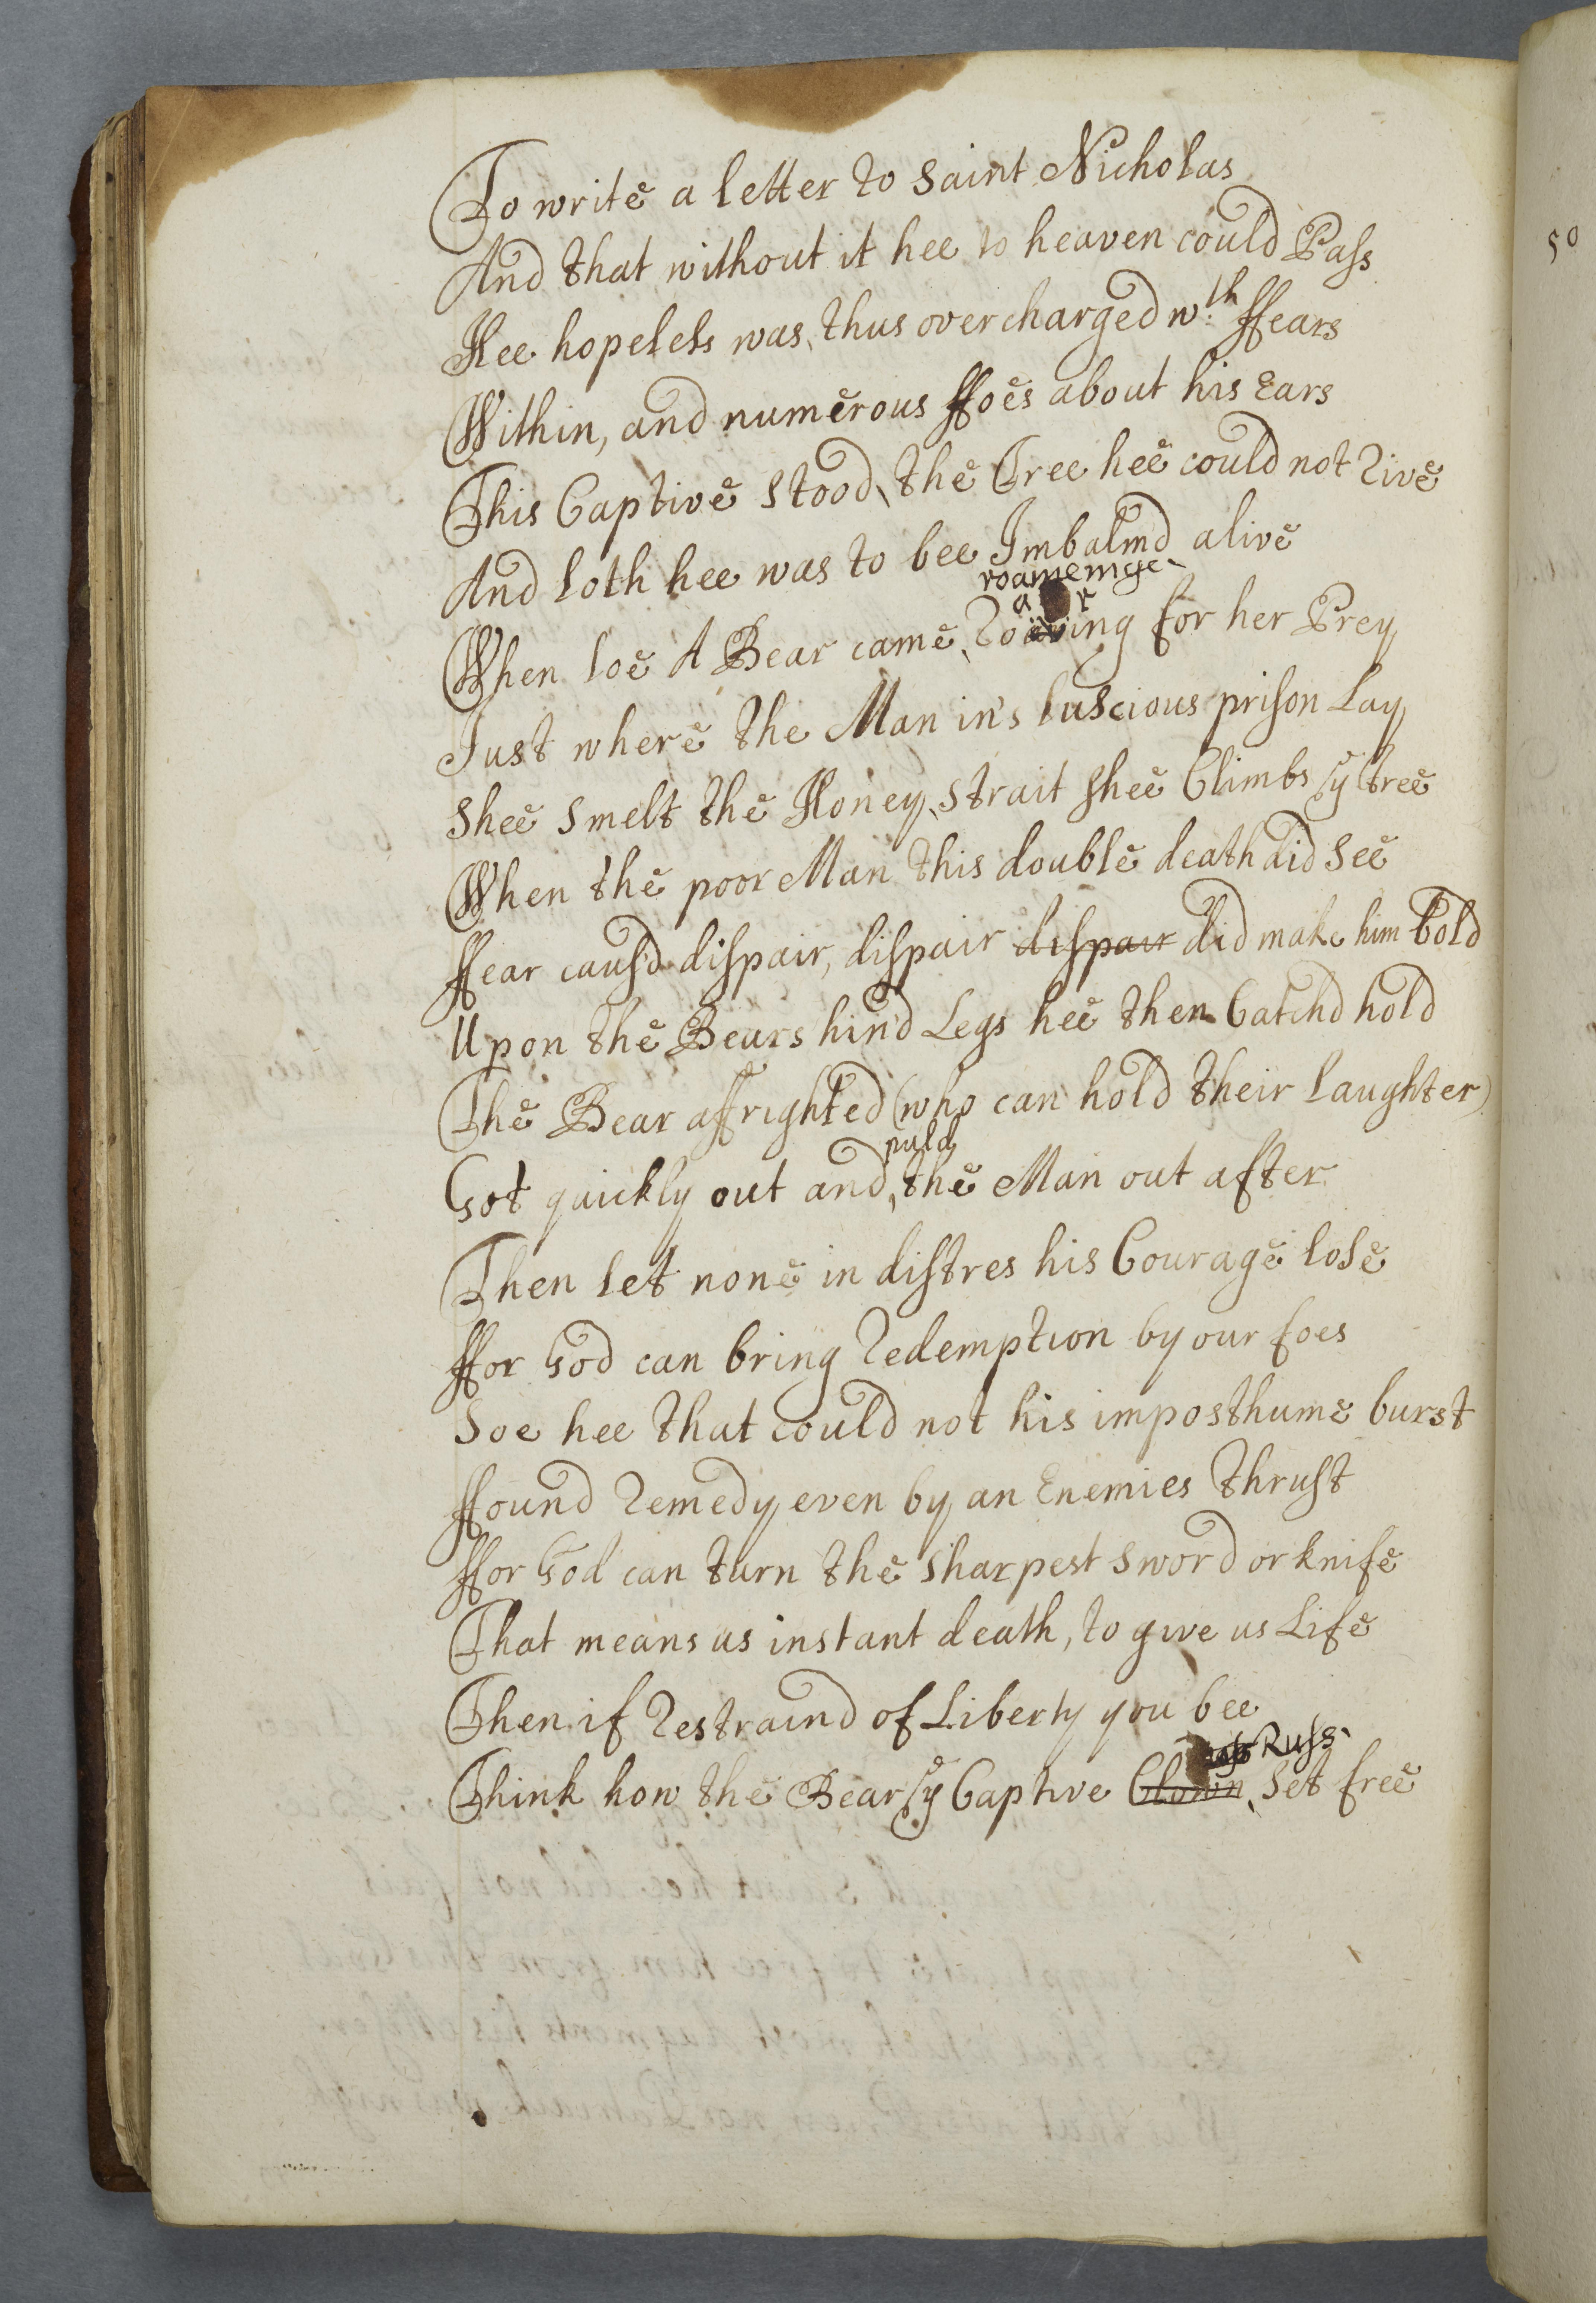 To write a letter to Saint Nicholas
And that without it hee to heaven could Pass
Hee hopeless was, thus overcharged wth ffears
Within, and numerous ffoes about his Ears
This Captive Stood, the Tree hee could not Rive
And loth hee was to bee Imbalmd alive
roameinge
a r
When loe A Bear came, Roaring for her Prey
Just where the Man in's luscious prison Lay
Shee Smelt the Honey, Strait Shee Climbs ye tree
When the poor Man this double death did See
ffear caus'd dispair, dispair dispair did make him bold
Upon the Bears hind Legs hee then Catchd hold
The Bear affrighted (who can hold their laughter)
puld
Got quickly out and, the Man out after
Then let none in distres his Courage lose
ffor God can bring Redemption by our foes
Soe hee that could not his imposthume burst
ffound Remedy even by an Enemies thrust
ffor God can turn the Sharpest Sword or knife
That means us instant death, to give us Life
Then if Restraind of Liberty you bee
Russ
Think how the Bear ye Captive Clown, Set free
50